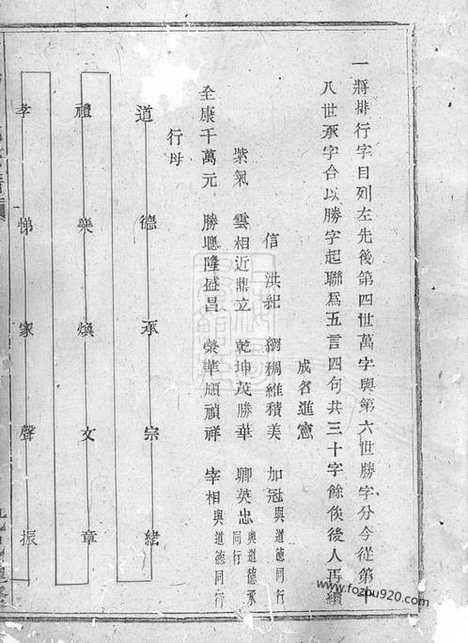 一將排行字目列左先後第四世萬字與第六世勝字分今從第十
八世承字合以勝字起聯爲五言四句共三十字餘俟後人再續
成名進憲
信 洪紀 綱穆維積美 加冠與道德同行
紫氣 雲相近鼎立 乾坤茂勝華 卿英忠與道德承同行
全康千萬元 勝聰隆盛昌 榮華順禎祥 宰相與道德同行
行母
道 德 承 宗 緒
禮 樂 煥 文 章
孝 悌 家 聲 振
www.fozpu920.com